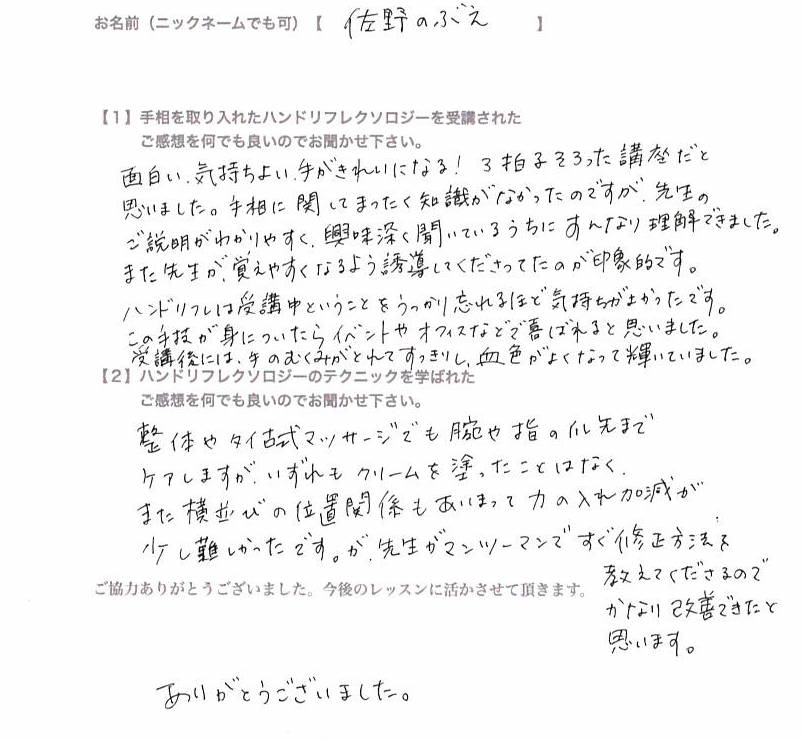 お名前（ニックネームでも可）【 佐野のぶえ 】
【1】手相を取り入れたハンドリフレクソロジーを受講された
ご感想を何でも良いのでお聞かせ下さい。
面白い、気持ちよい、手がきれいになる！3拍子そろった講座だと
思いました。手相に関してまったく知識がなかったのですが、先生の
ご説明がわかりやすく、興味深く聞いているうちにすんなり理解できました。
また先生が、覚えやすくなるよう誘導してくださってたのが印象的です。
ハンドリフレは受講中ということをうっかり忘れるほど気持ちがよかったです。
この手技が身についたらイベントやオフィスなどで喜ばれると思いました。
受講後には、手のむくみがとれてすっきりし、血色がよくなって輝いていました。
【2】ハンドリフレクソロジーのテクニックを学ばれた
ご感想を何でも良いのでお聞かせ下さい。
整体やタイ古式マッサージでも腕や指の爪先まで
ケアしますが、いずれもクリームを塗ったことはなく、
また横並びの位置関係もあいまって力の入れ加減が
少し難しかったです。が、先生がマンツーマンですぐ修正方法を
教えてくださるので
かなり改善できたと
思います。
ご協力ありがとうございました。今後のレッスンに活かさせて頂きます。
ありがとうございました。